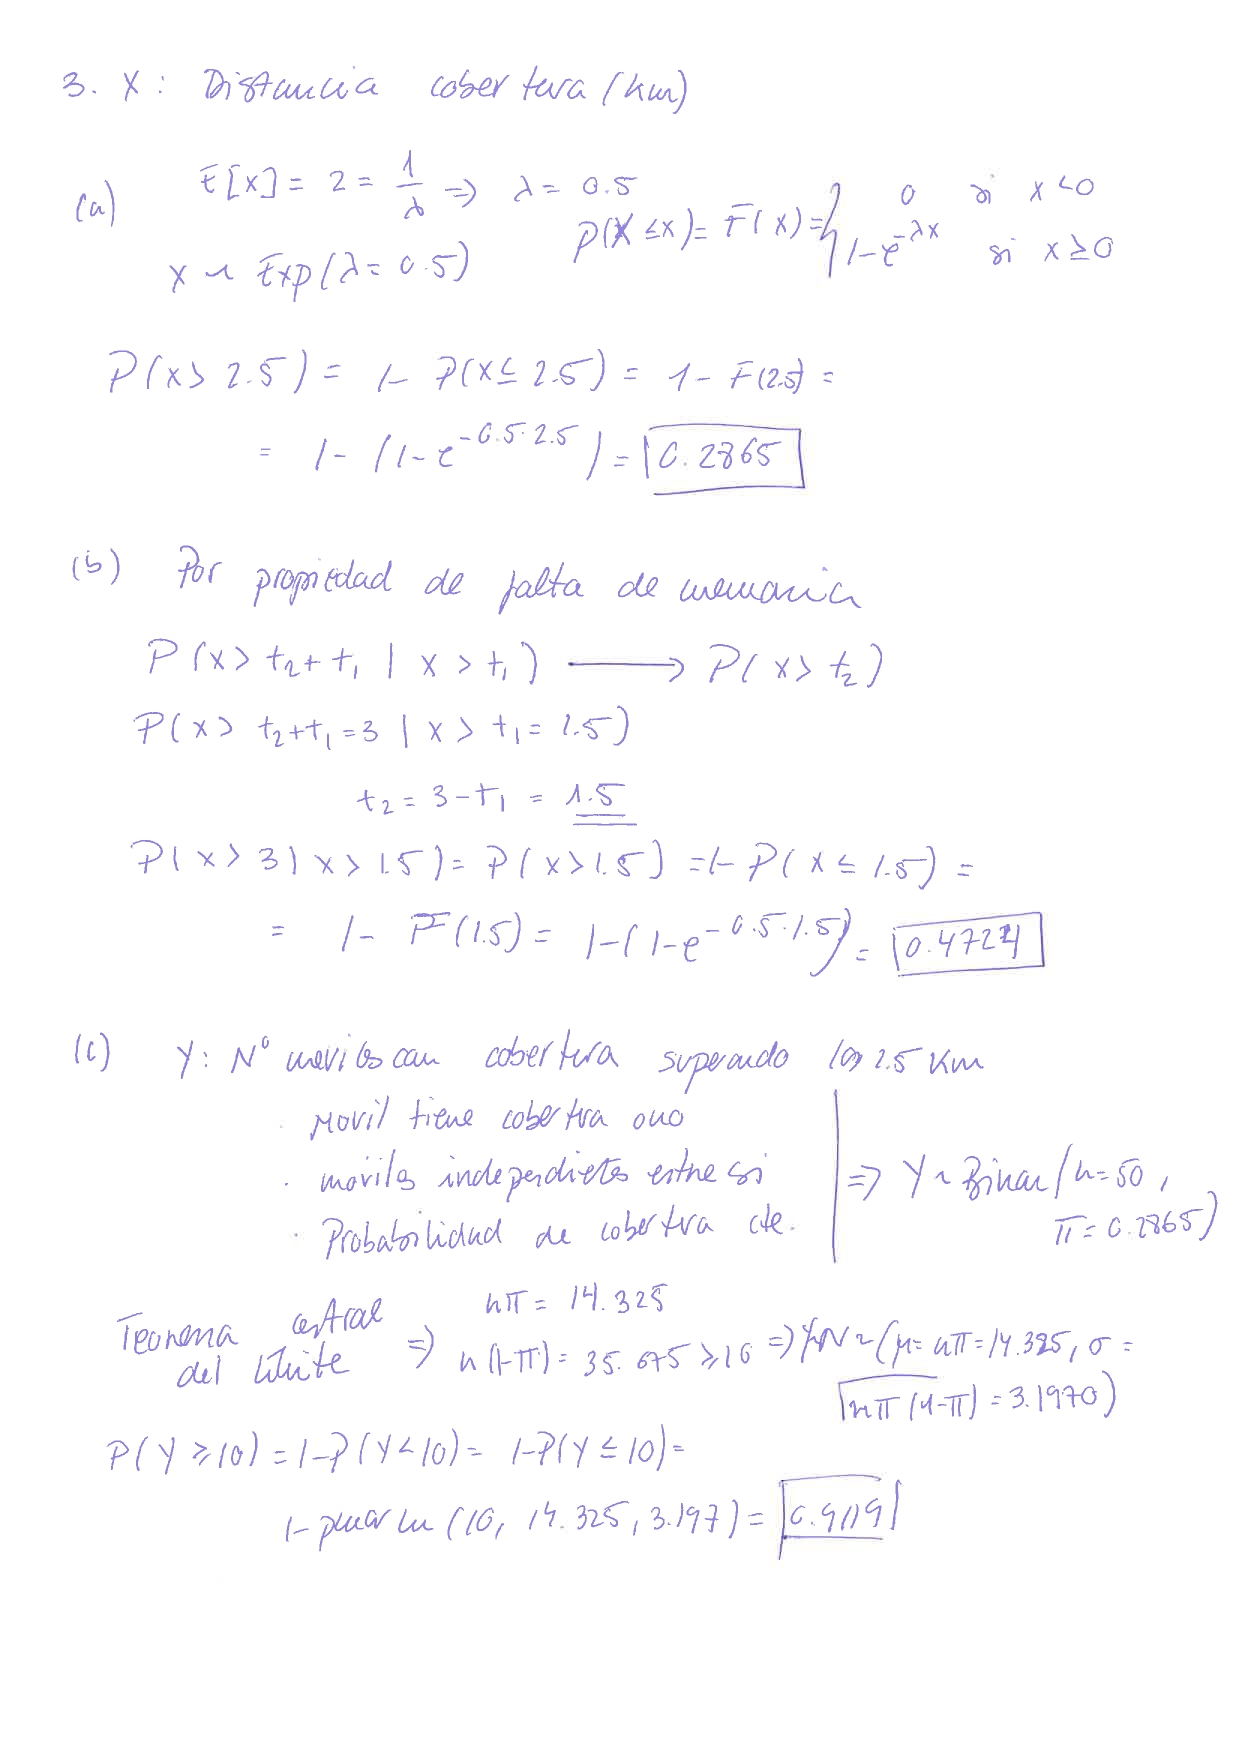 3. X: Distancia cobertura (km)
(a) E[X] = 2 = 1/λ => λ = 0.5
X ~ Exp(λ = 0.5)
P(X ≤ x) = F(x) = { 0 si x < 0
1 - e^{-λx} si x ≥ 0
P(X > 2.5) = 1 - P(X ≤ 2.5) = 1 - F(2.5) =
= 1 - (1 - e^{-0.5·2.5}) = 0.2865
(b) Por propiedad de falta de memoria
P(X > t₂ + t₁ | X > t₁) ⟶ P(X > t₂)
P(X > t₂+t₁ = 3 | X > t₁ = 1.5)
t₂ = 3 - t₁ = 1.5
P(X > 3 | X > 1.5) = P(X > 1.5) = 1 - P(X ≤ 1.5) =
= 1 - F(1.5) = 1 - (1 - e^{-0.5·1.5}) = 0.4724
(c) Y: Nº moviles con cobertura superando los 2.5 Km
· Movil tiene cobertura o no
· moviles independietes entre si
· Probabilidad de cobertura cte.
=> Y ~ Binom(n = 50,
π = 0.2865)
Teorema central
del limite => nπ = 14.325
n(1-π) = 35.675 ≥ 10 => Y ~ N ~ (μ = nπ = 14.325, σ =
√nπ(1-π) = 3.1970)
P(Y ≥ 10) = 1 - P(Y < 10) = 1 - P(Y ≤ 10) =
1 - pnorm (10, 14.325, 3.197) = 0.9119